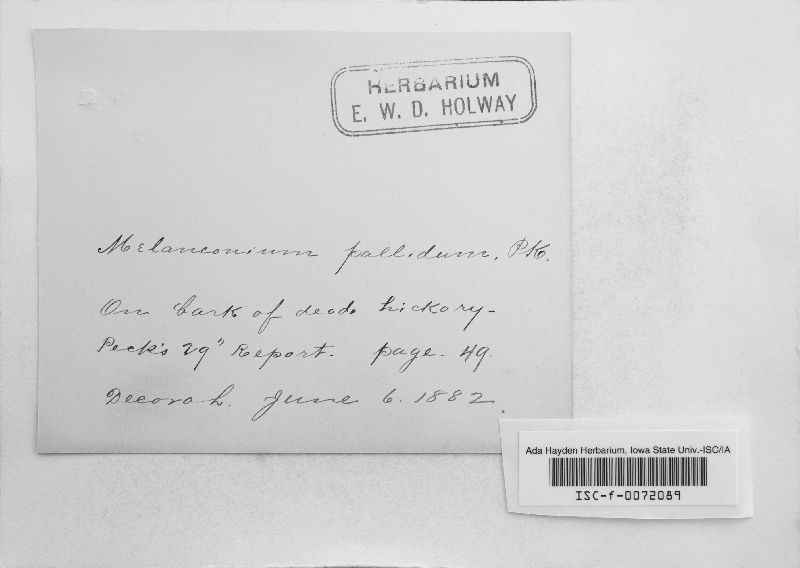 HERBARIUM
E. W. D. HOLWAY
Melanconium pallidum, PK.
On bark of dead hickory-
Peck's 29" Report. page. 49.
Decorah. June 6. 1882.
Ada Hayden Herbarium, Iowa State Univ.-ISC/IA
ISC-f-0072089